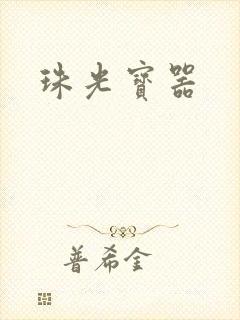 珠光寶器
普希金